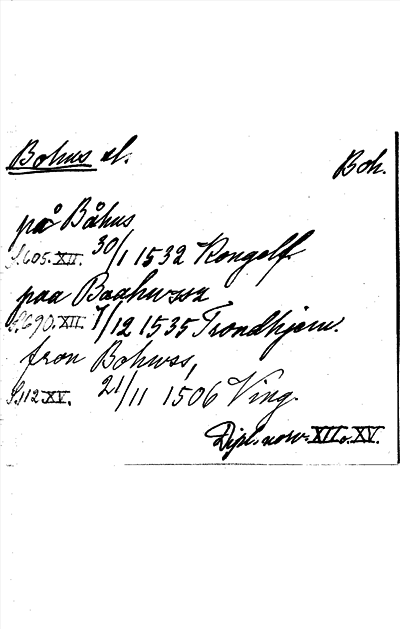 Bohus sl. Boh.
på Båhus
S. 605. XII. 30/1 1532 Kongelf.
paa Baahwssa
S. 690. XII. 7/12 1535 Trondhjem.
fron Bohwss,
S. 112 XV. 21/11 1506 Ving.
Dipl. norv. XII o. XV.